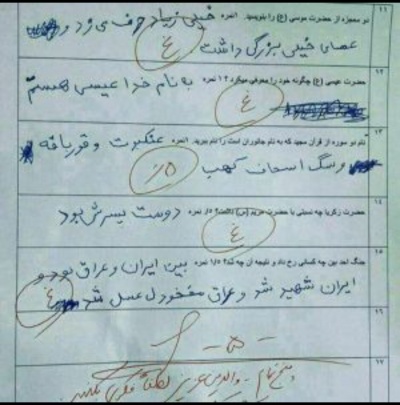 ۱۱
دو معجزه از حضرت موسی (ع) را بنویسید. ۱نمره خیلی زیاد حرف می زد و
عصای خیلی بزرگی داشت غ
۱۲
حضرت عیسی (ع) چگونه خود را معرفی میکرد؟ ۱ نمره به نام خدا عیسی هستم
غ
۱۳
نام دو سوره از قرآن مجید که به نام جانوران است را نام ببرید. ۱نمره عنکبوت و قورباقه
و سگ اسحاف کهب ۰/۵
۱۴
حضرت زکریا چه نسبتی با حضرت مریم (س) داشت؟ ۰/۵ نمره دوست پسرش بود
غ
۱۵
جنگ احد بین چه کسانی رخ داد و نتیجه آن چه شد؟ ۱/۵ نمره بین ایران و عراق بود و
ایران شهید شد و عراق مفقود ل عسل شد غ
۱۶
۱۷
والدین عزیز لطفا فکری بکنید